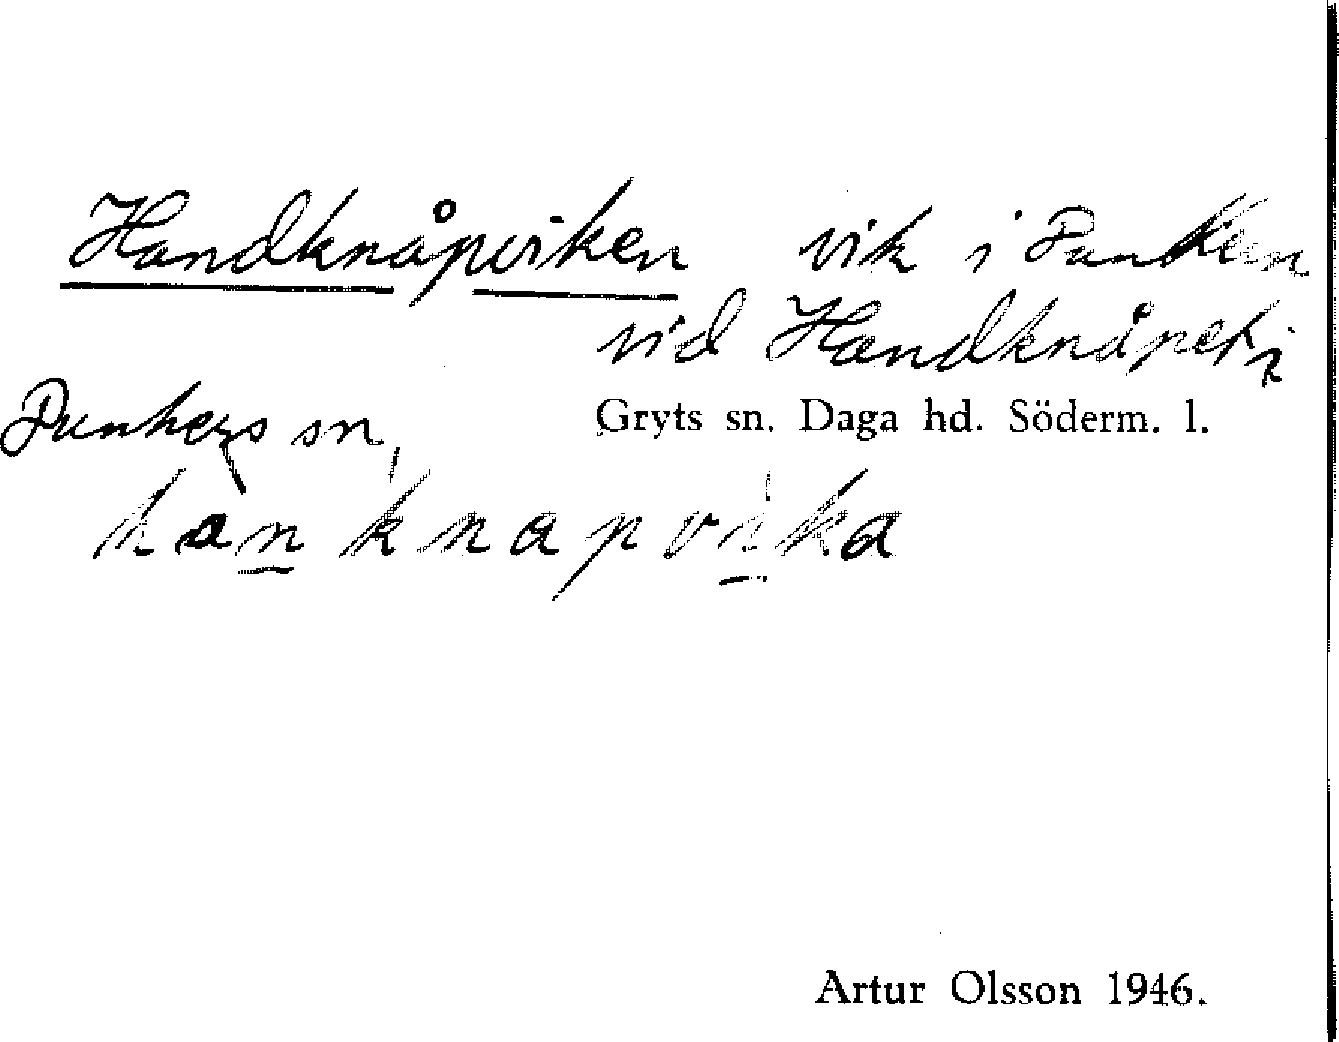 Handknåpviken vik i Dunkern
vid Handknåpet i
Dunkers sn,
Gryts sn. Daga hd. Söderm. l.
han knapvika
Artur Olsson 1946.